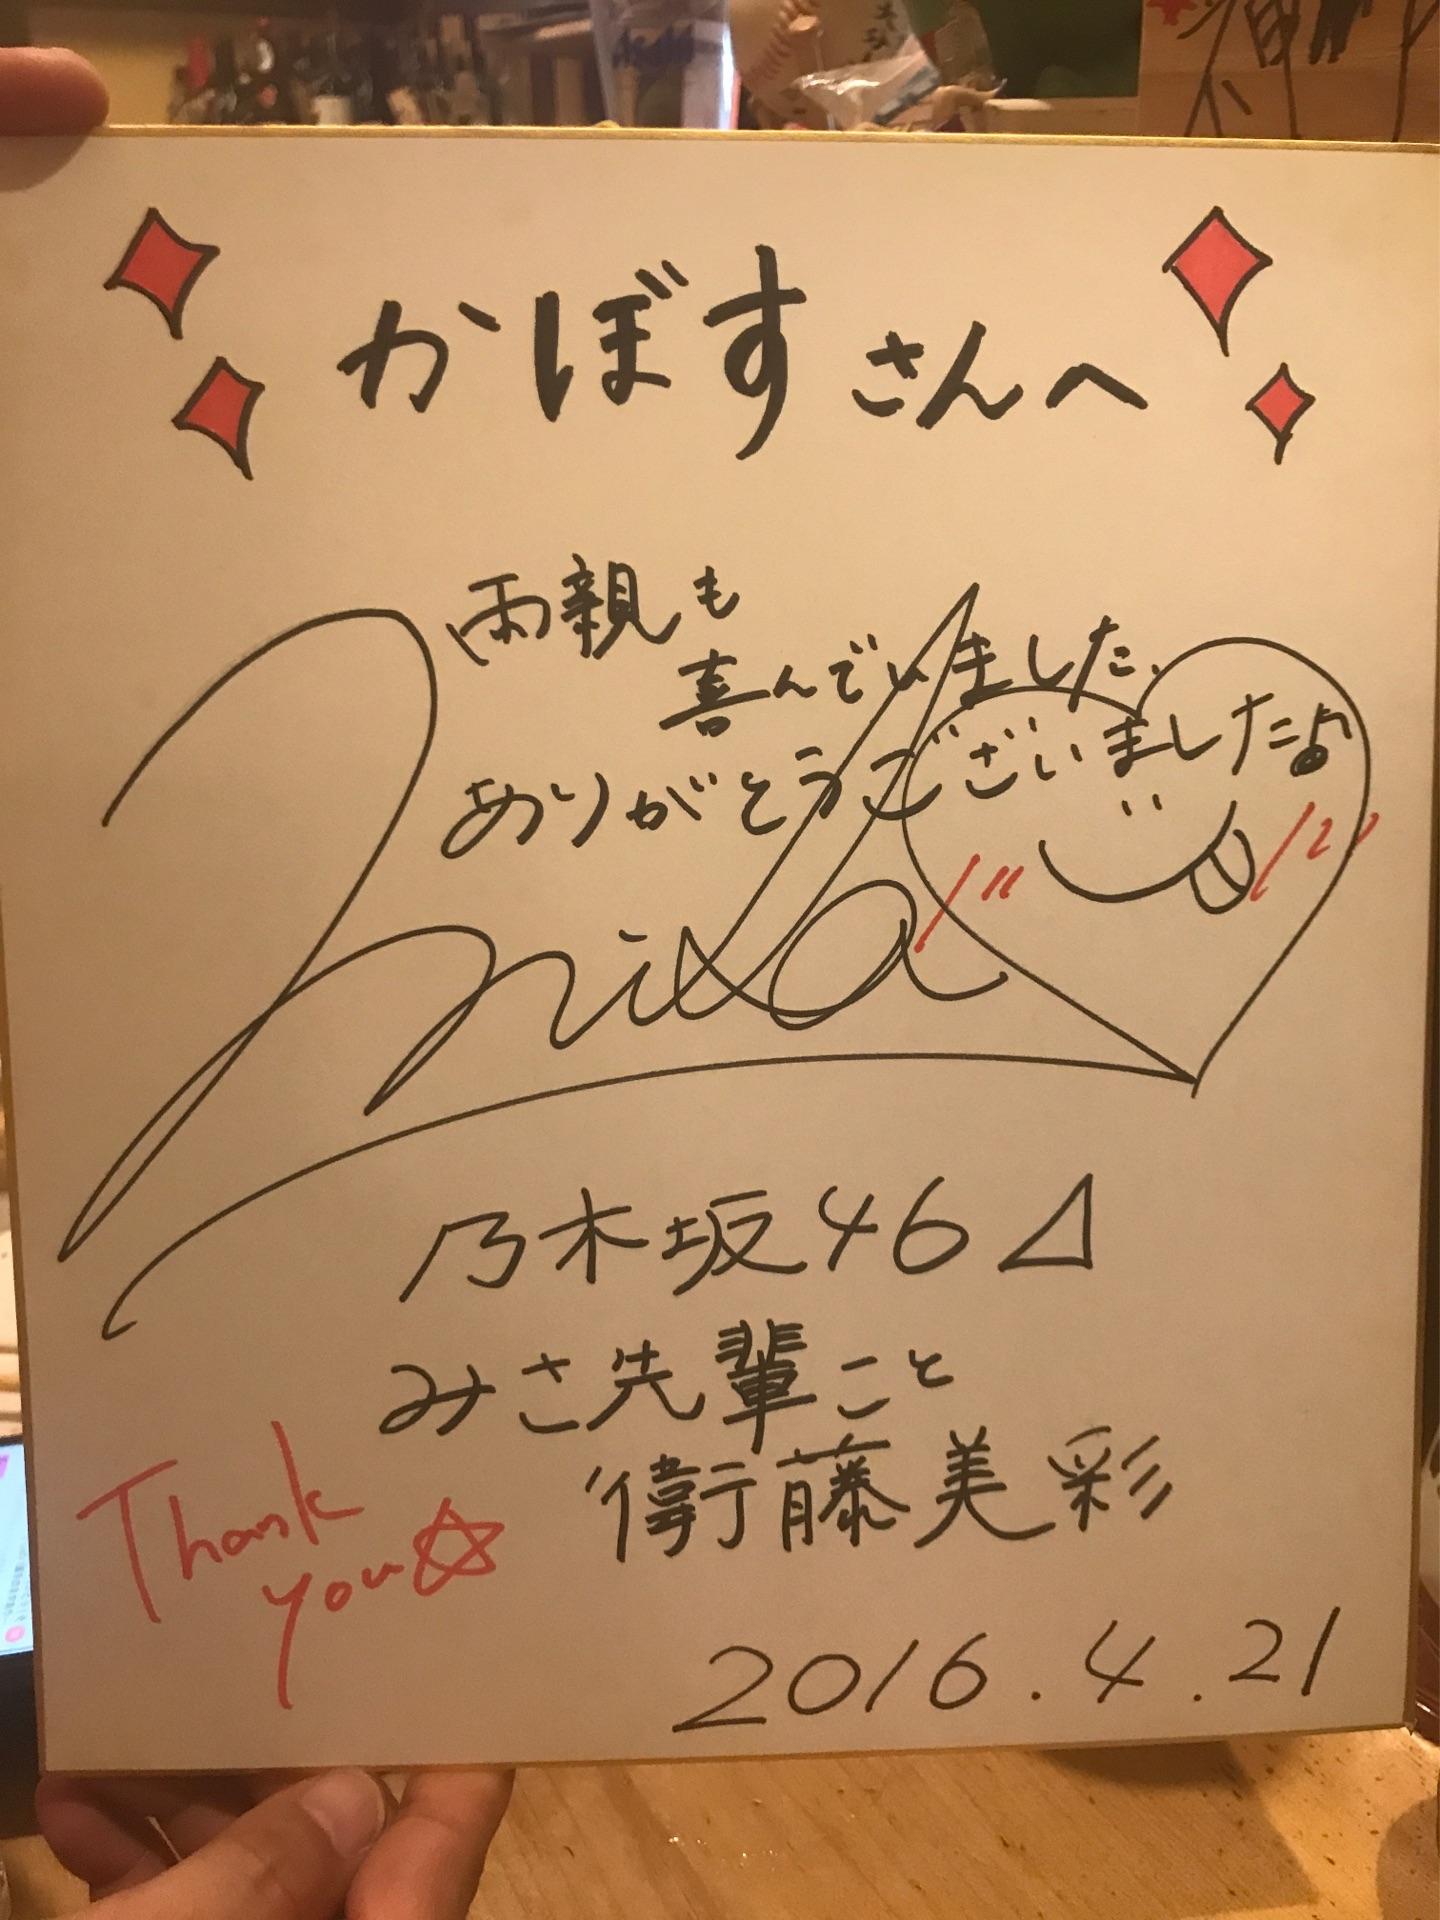 かぼすさんへ
両親も
喜んでいました。
ありがとうございました♪
misa
乃木坂46⊿
みさ先輩こと
衛藤美彩
Thank
you☆
2016.4.21